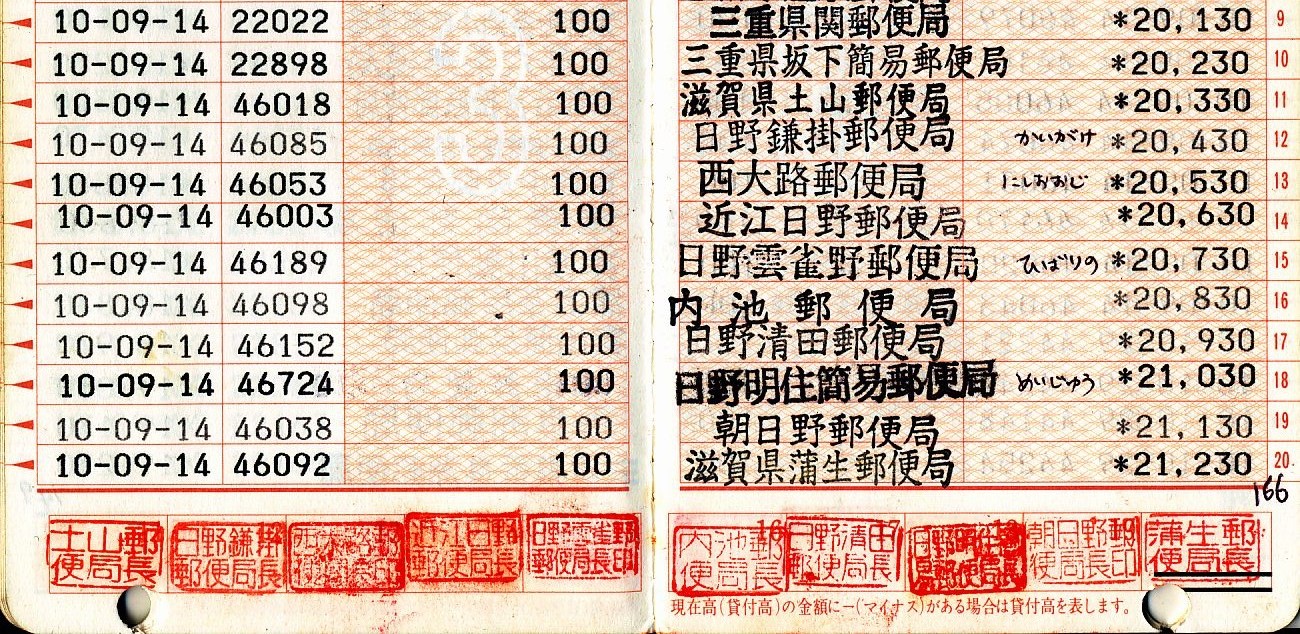 10-09-14 22022 100 三重県関郵便局 *20,130 9
10-09-14 22898 100 三重県坂下簡易郵便局 *20,230 10
10-09-14 46018 100 滋賀県土山郵便局 *20,330 11
10-09-14 46085 100 日野鎌掛郵便局 かいがけ *20,430 12
10-09-14 46053 100 西大路郵便局 にしおおじ *20,530 13
10-09-14 46003 100 近江日野郵便局 *20,630 14
10-09-14 46189 100 日野雲雀野郵便局 ひばりの *20,730 15
10-09-14 46098 100 内池郵便局 *20,830 16
10-09-14 46152 100 日野清田郵便局 *20,930 17
10-09-14 46724 100 日野明住簡易郵便局 めいじゅう *21,030 18
10-09-14 46038 100 朝日野郵便局 *21,130 19
10-09-14 46092 100 滋賀県蒲生郵便局 *21,230 20
166
土山郵便局長 日野鎌掛郵便局長 近江日野郵便局長 日野雲雀野郵便局長印 内池郵便局長 日野清田郵便局長 朝日野郵便局長印 蒲生郵便局長
現在高(貸付高)の金額に-(マイナス)がある場合は貸付高を表します。